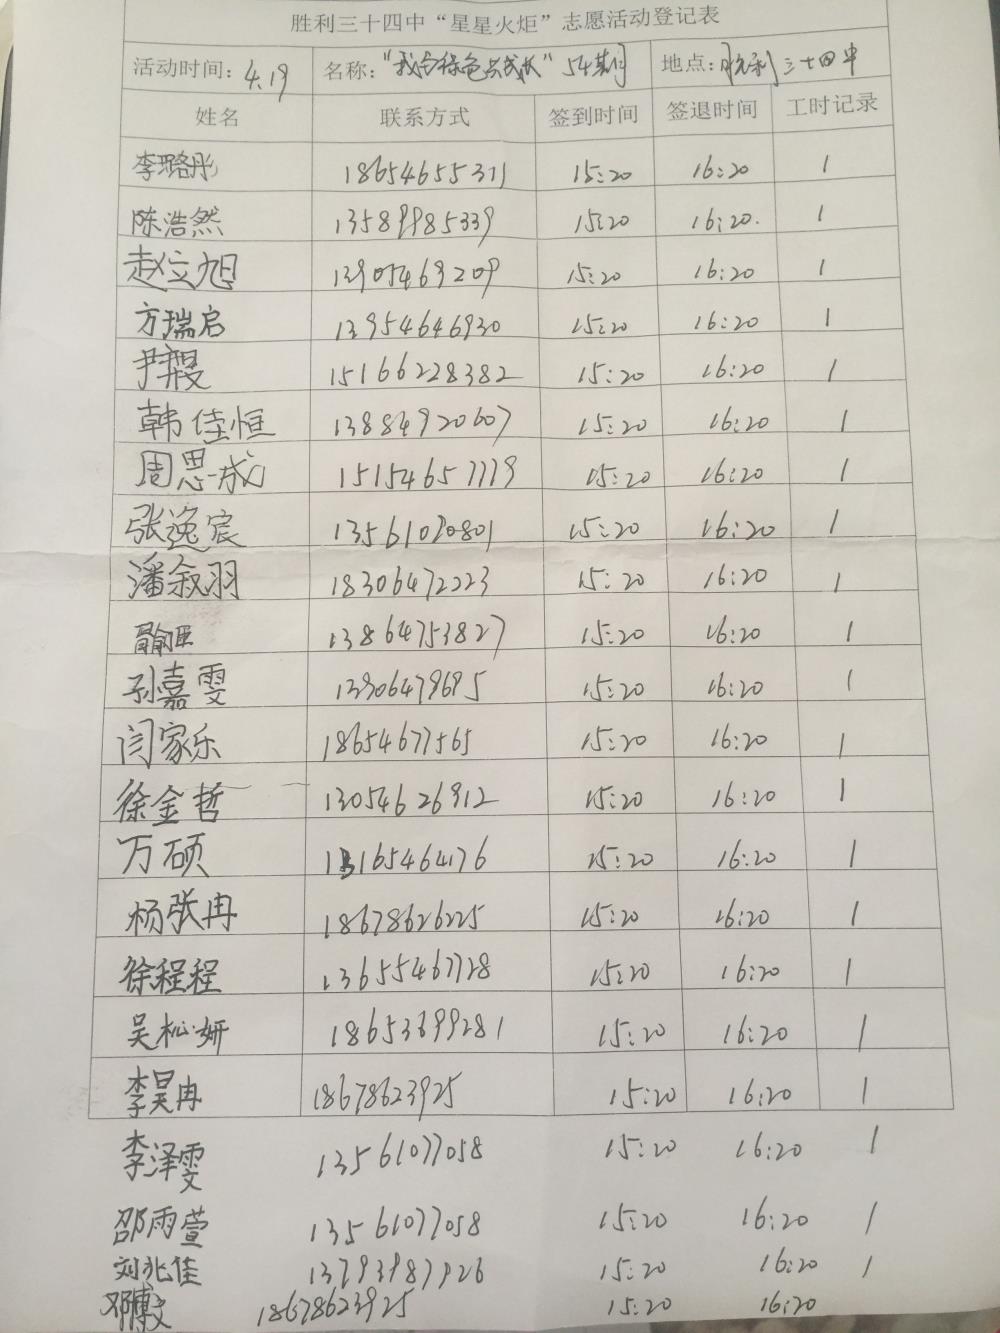 胜利三十四中“星星火炬”志愿活动登记表
活动时间：4.19 名称：“我 绿色 ”54 地点：胜利三十四中
姓名 联系方式 签到时间 签退时间 工时记录
李璐彤 18654655311 15:20 16:20 1
陈浩然 13589985339 15:20 16:20. 1
赵立旭 13905469209 15:20 16:20 1
方瑞启 13954646930 15:20 16:20 1
尹 15166228382 15:20 16:20 1
韩佳恒 13884920607 15:20 16:20 1
周思成 15154657779 15:20 16:20 1
张逸宸 13561030801 15:20 16:20 1
潘叙羽 18306472223 15:20 16:20 1
13864753827 15:20 16:20 1
孙嘉雯 13906479695 15:20 16:20 1
闫家乐 18654677565 15:20 16:20 1
徐金哲 13054626912 15:20 16:20 1
万硕 15:20 16:20 1
杨张冉 18678626225 15:20 16:20 1
徐程程 13655467728 15:20 16:20 1
吴松妍 18653699281 15:20 16:20 1
李昊冉 18678623925 15:20 16:20 1
李泽雯 13561077058 15:20 16:20 1
邵雨萱 13561077058 15:20 16:20 1
刘兆佳 13793987926 15:20 16:20 1
邓博文 18678623925 15:20 16:20